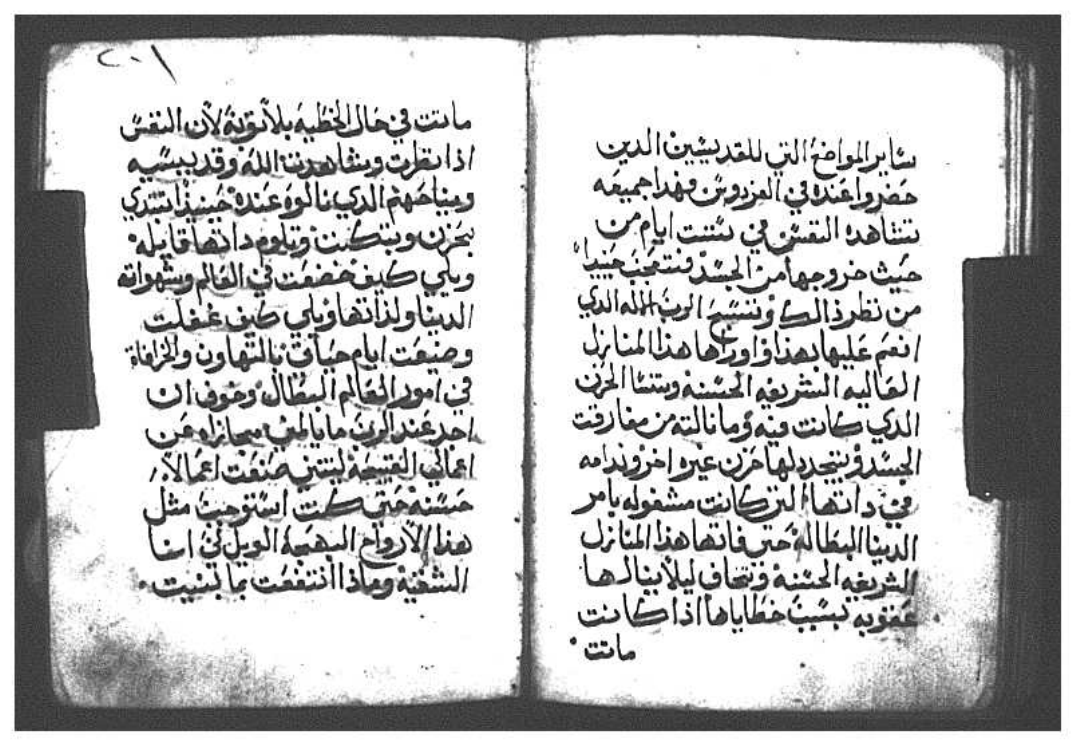 ساير المواضع التي للقديسين الدين
حضروا عنده في الفردوس فهدا جميعه
تشاهده النفس في ستت ايام من
حيث خروجها من الجسد وتتعجب حينيدا
من نظر ذالك وتسبح الرب الاله الدي
انعم عليها بهدا واوراها هذا المنازل
العاليه الشريفه الحسنه وتنسا الحزن
الدي كانت فيه وما نالته من مفارقت
الجسد ويتجدد لها حزن غيره اخر وندامه
في داتها التي كانت مشغوله بامر
الدينا البطاله حتى فاتها هذا المنازل
الشريفه الحسنه وتخاف ليلا ينالها
عقوبه بسبب خطاياها اذا كانت
ماتت
٢٠١
ماتت في حال الخطيه بلا توبة لان النفس
اذا نظرت وشاهدت الله وقديسيه
ونياحهم الدي نالوه عنده حينيذا تبتدي
بحزن وبتكيت وتلوم داتها قايله
ويلي كيف خضعت في العالم وشهواته
الدينا ولذاتها ويلي كيف غفلت
وضيعت ايام حياتي بالتهاون والخرافاة
في امور العالم البطال وخوف ان
احد عند الرب
اعمالي القبيحة ليتني صنعت اعمالا
حسنة حتى كنت استوجب مثل
هذا الارواح البهجة الويل لي انا
الشقية وماذا انتفعت بما بنيت